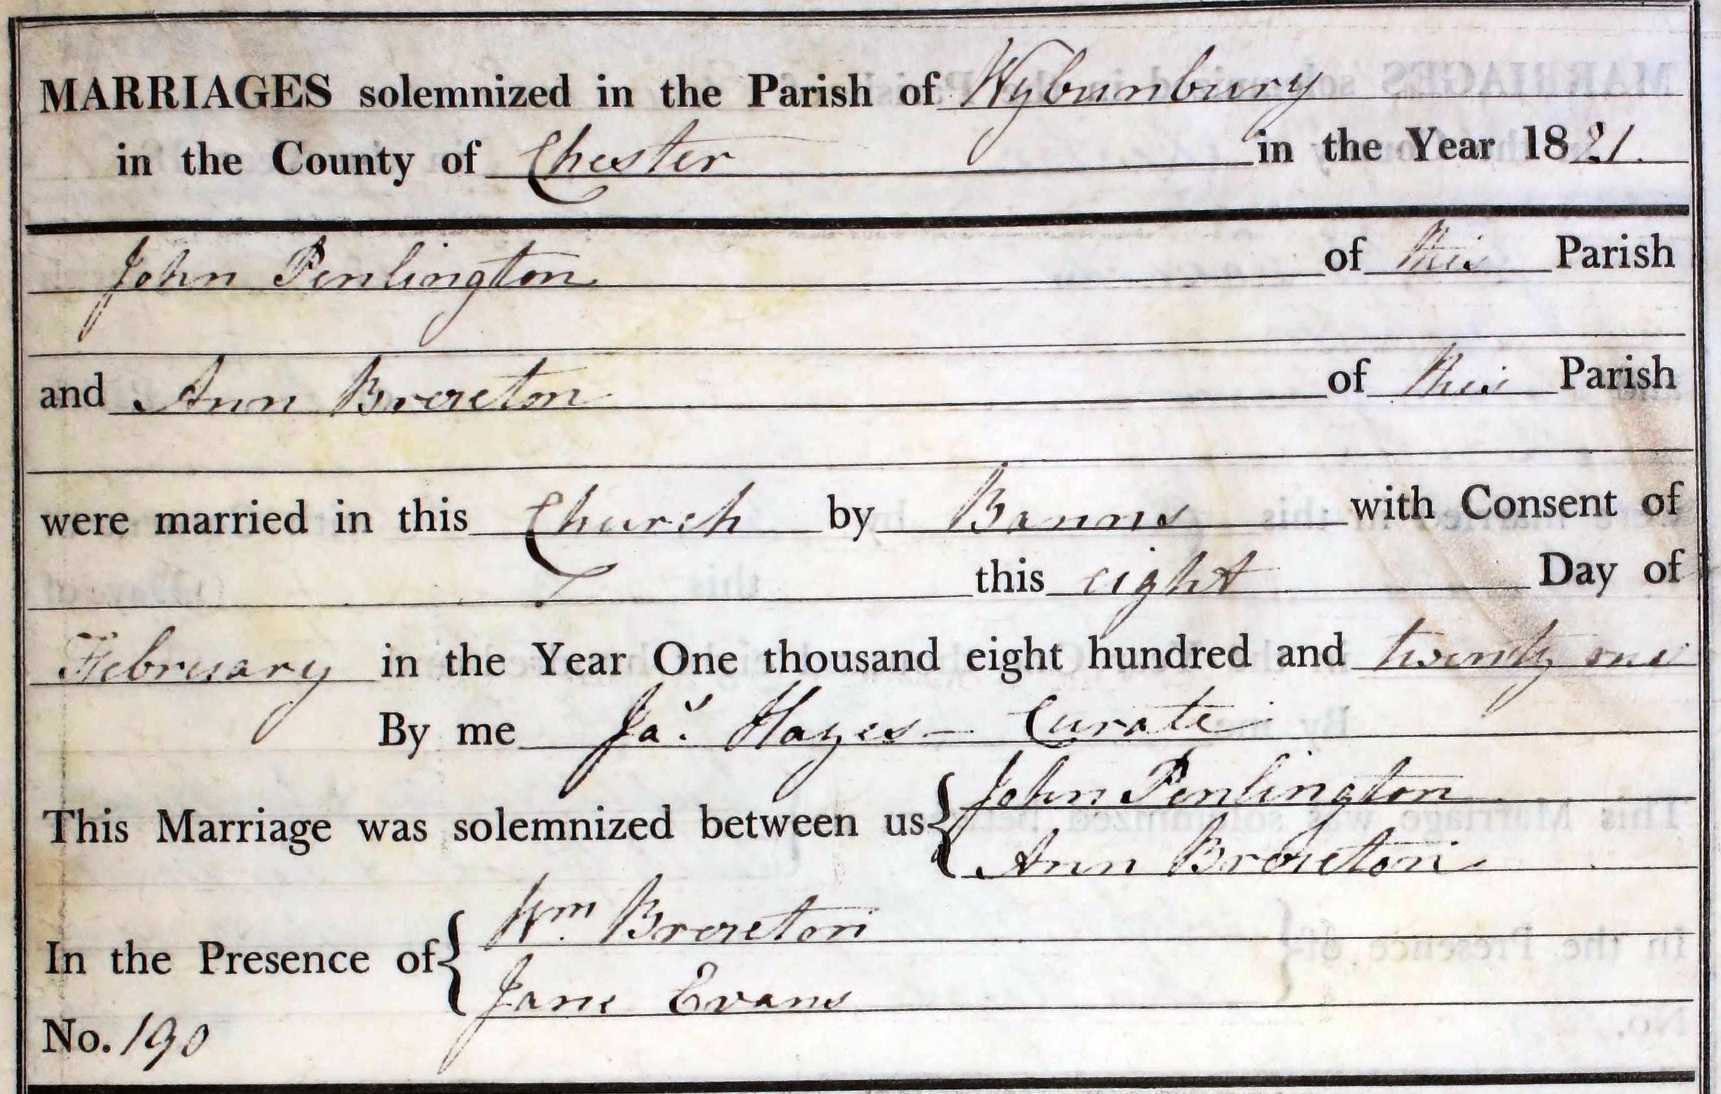 MARRIAGES solemnized in the Parish of Wybunbury
in the County of Chester in the Year 1821.
John Penlington of this Parish
and Ann Brereton of this Parish
were married in this Church by Banns with Consent of
this eight Day of
February in the Year One thousand eight hundred and twenty one
By me Jas. Hayes Curate
This Marriage was solemnized between us { John Penlington
Ann Brereton
In the Presence of { Wm. Brereton
Jane Evans
No. 190